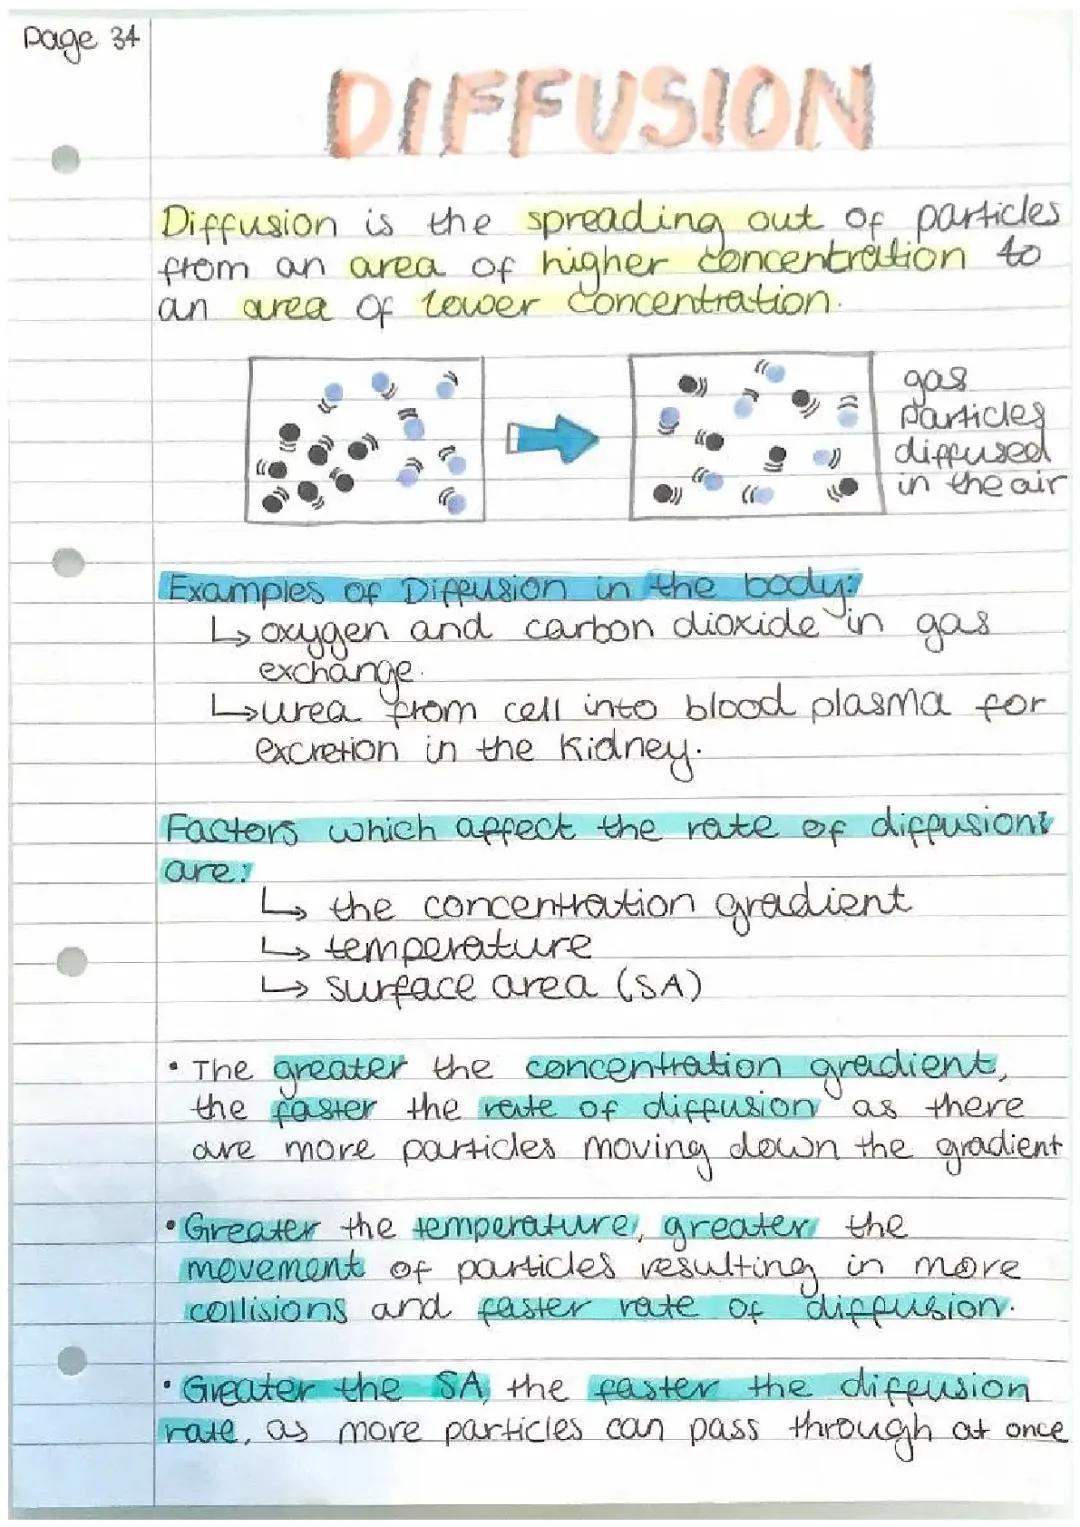 Page 34
DIFFUSION
Diffusion is the spreading out of particles
from an area of higher concentration to
an area of lower concentration.
gas
particles
diffused
in the air
Examples of Diffusion in the body:
↳ oxygen and carbon dioxide in gas
exchange.
↳ urea from cell into blood plasma for
excretion in the kidney.
Factors which affect the rate of diffusion:
are:
↳ the concentration gradient
↳ temperature
↳ surface area (SA)
• The greater the concentration gradient,
the faster the rate of diffusion as there
are more particles moving down the gradient
• Greater the temperature, greater the
movement of particles resulting in more
collisions and faster rate of diffusion.
• Greater the SA, the faster the diffusion
rate, as more particles can pass through at once